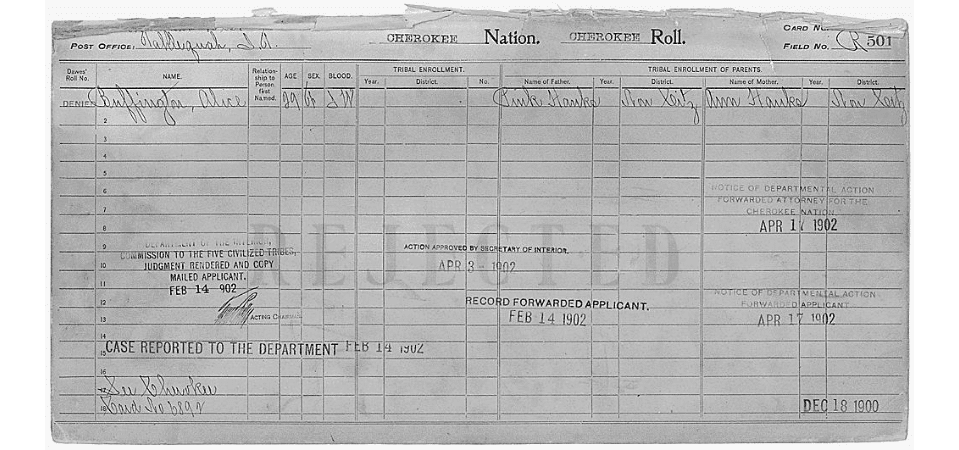 CARD NO.
POST OFFICE: Tahlequah, I.T. CHEROKEE Nation. CHEROKEE Roll. FIELD NO. R 501
Dawes' Roll No. NAME. Relationship to Person first Named. AGE SEX. BLOOD. TRIBAL ENROLLMENT. TRIBAL ENROLLMENT OF PARENTS.
Year. District. No. Name of Father. Year. District. Name of Mother. Year. District.
DENIED Buffington, Alice 29 I W Hanks Non Citz Ann Hanks Non Citz
2
3
4
5
6
NOTICE OF DEPARTMENTAL ACTION
FORWARDED ATTORNEY FOR THE
7
CHEROKEE NATION
8
APR 17 1902
REJECTED
DEPARTMENT OF THE INTERIOR,
9
COMMISSION TO THE FIVE CIVILIZED TRIBES,
ACTION APPROVED BY SECRETARY OF INTERIOR.
10
JUDGMENT RENDERED AND COPY
APR 3 - 1902
MAILED APPLICANT.
11
FEB 14 902
NOTICE OF DEPARTMENTAL ACTION
12
RECORD FORWARDED APPLICANT.
FORWARDED APPLICANT
ACTING CHAIRMAN
13
FEB 14 1902
APR 17 1902
14
15
CASE REPORTED TO THE DEPARTMENT FEB 14 1902
16
17
See Cherokee
18
Card No 6892
DEC 18 1900